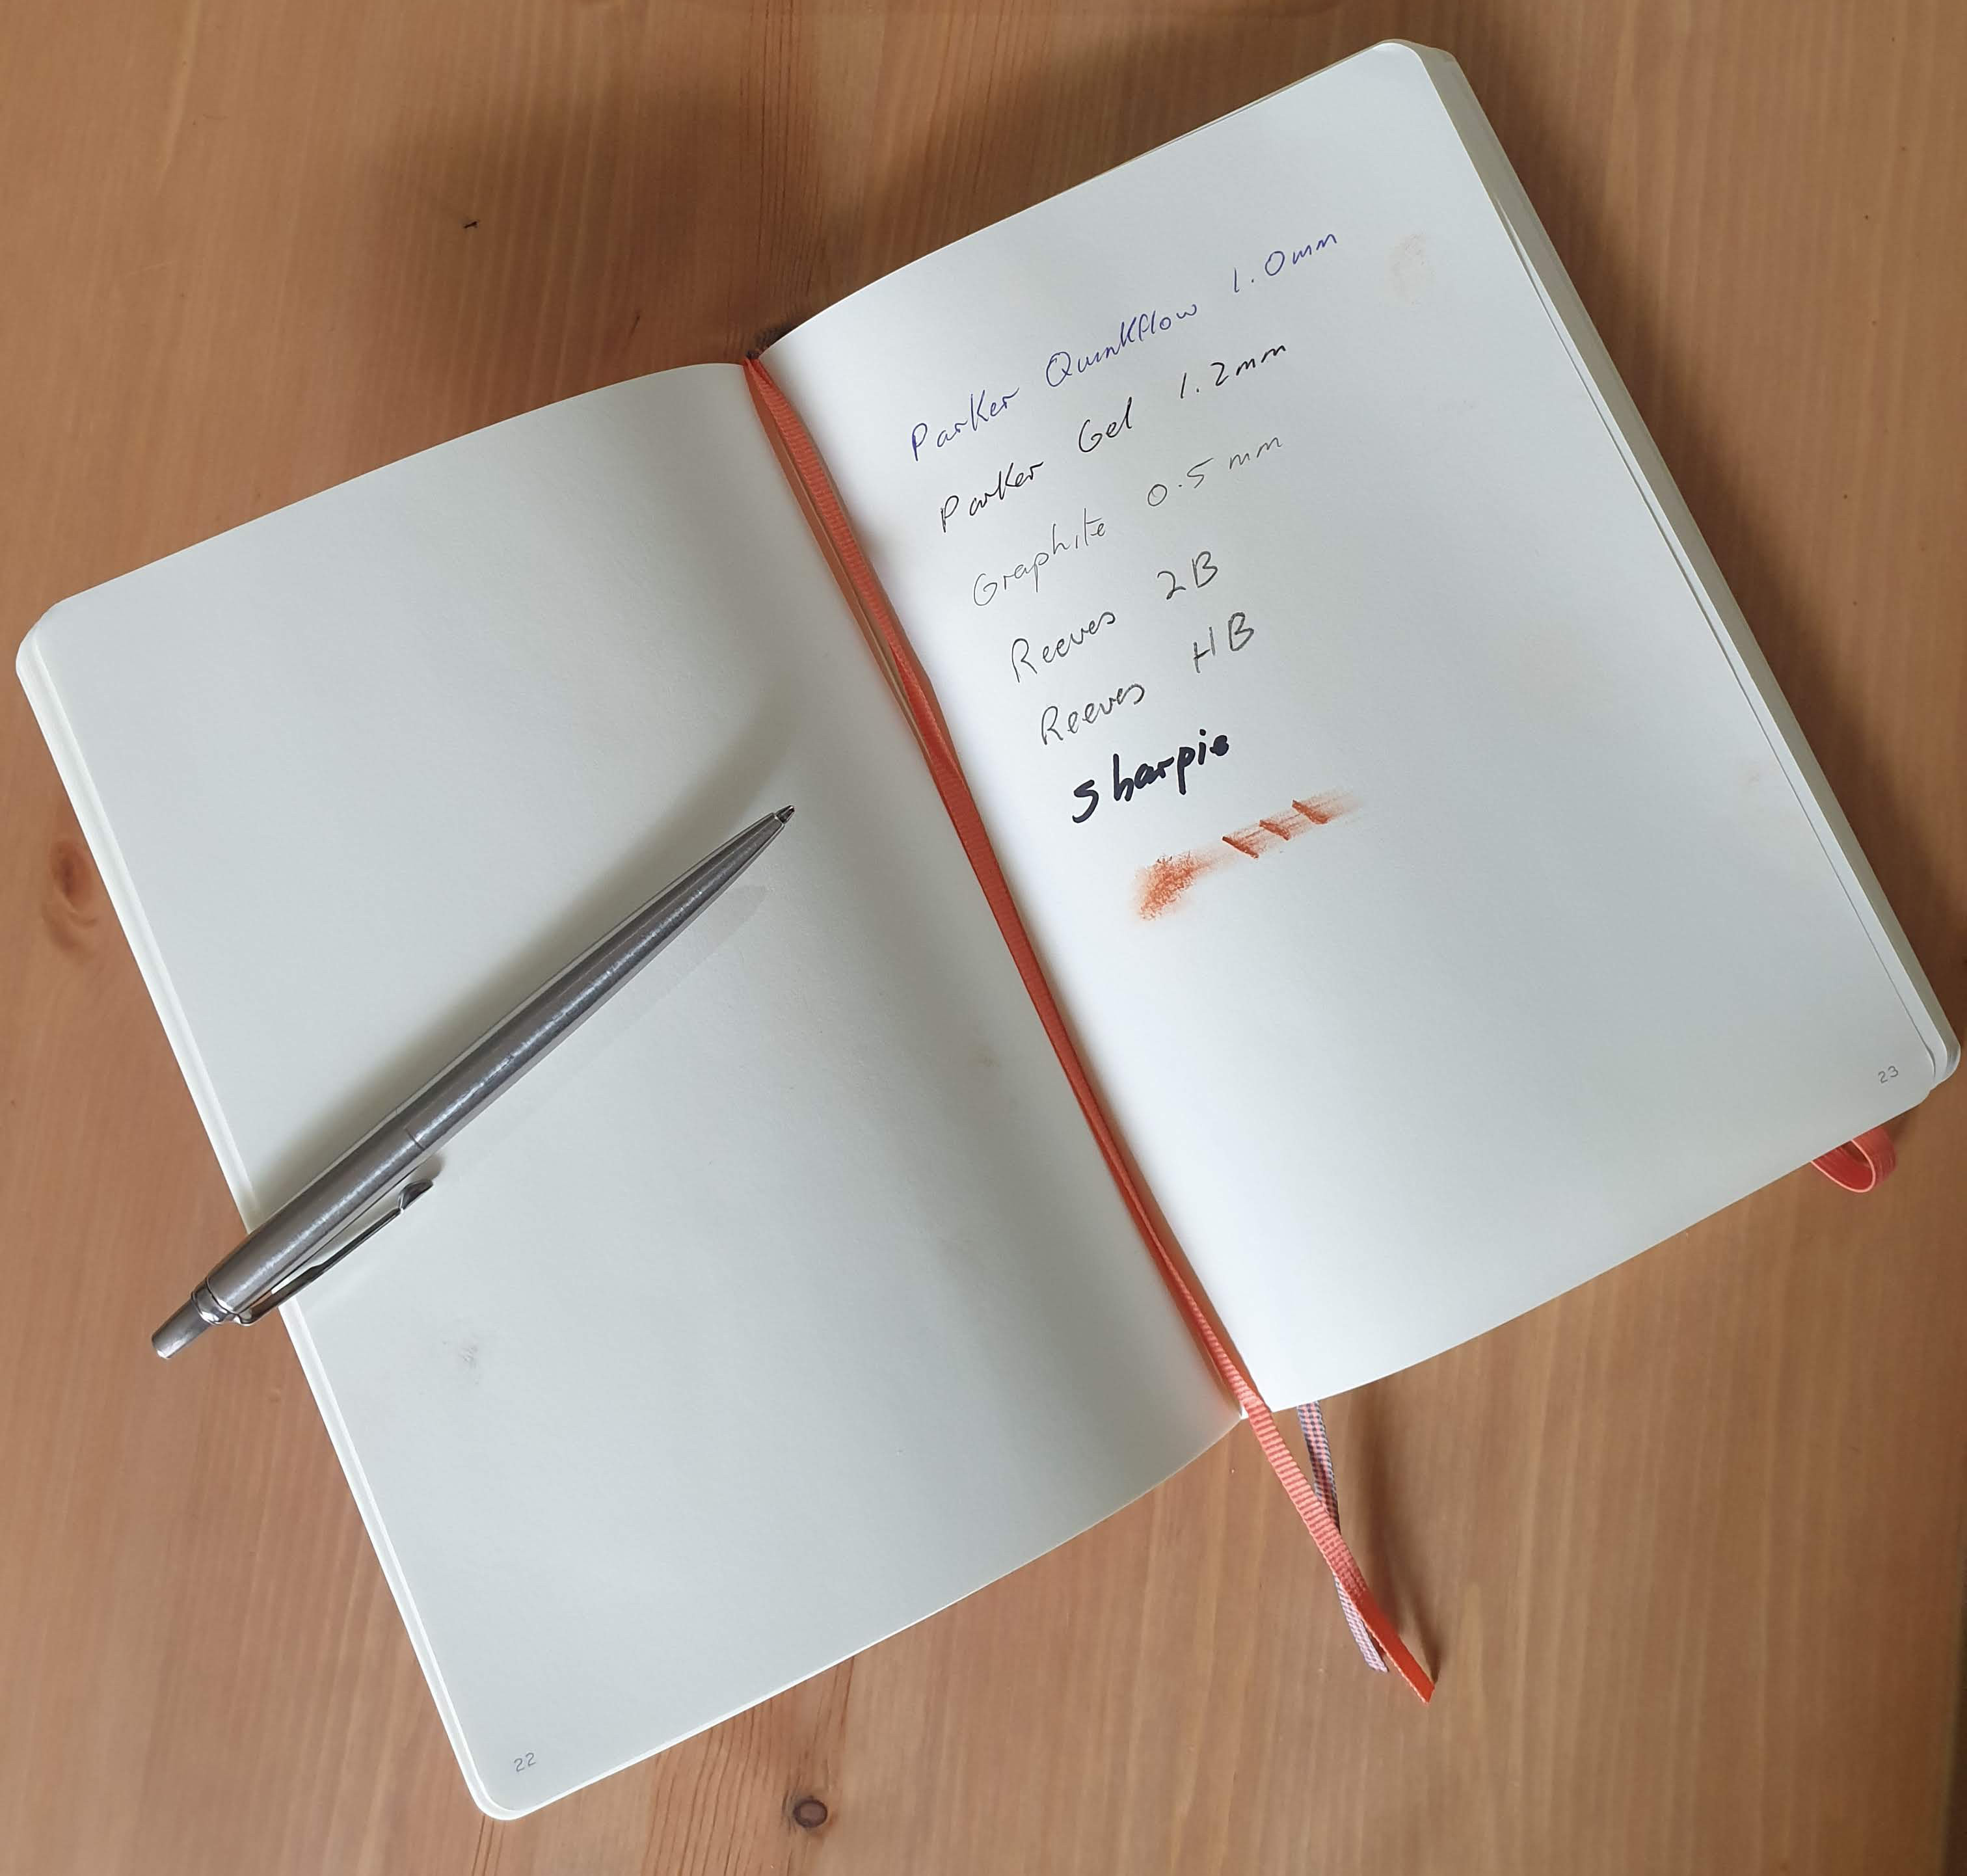 Parker Quinkflow 1.0mm
Parker Gel 1.2mm
Graphite 0.5mm
Reeves 2B
Reeves HB
Sharpie
22
23